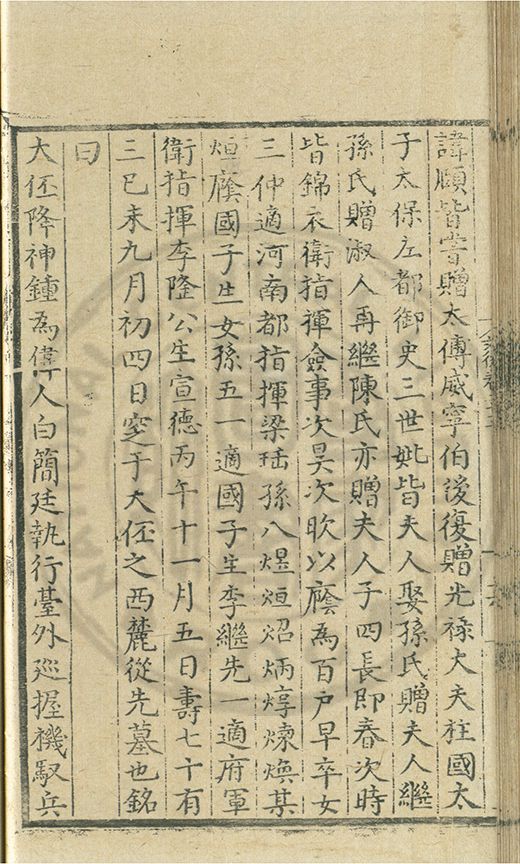 諱順皆嘗贈太傅威寧伯後復贈光祿大夫柱國太
子太保左都御史三世妣皆夫人娶孫氏贈夫人繼
孫氏贈淑人再繼陳氏亦贈夫人子四長即春次時
皆錦衣衛指揮僉事次昊次昕以廕為百戶早卒女
三仲適河南都指揮梁珤孫八煜烜炤炳焞煉煥某
烜廕國子生女孫五一適國子生李繼先一適府軍
衛指揮李隆公生宣德丙午十一月五日壽七十有
三巳未九月初四日窆于大伾之西麓從先墓也銘
曰
大伾降神鍾為偉人白簡廷執行臺外廵握機馭兵